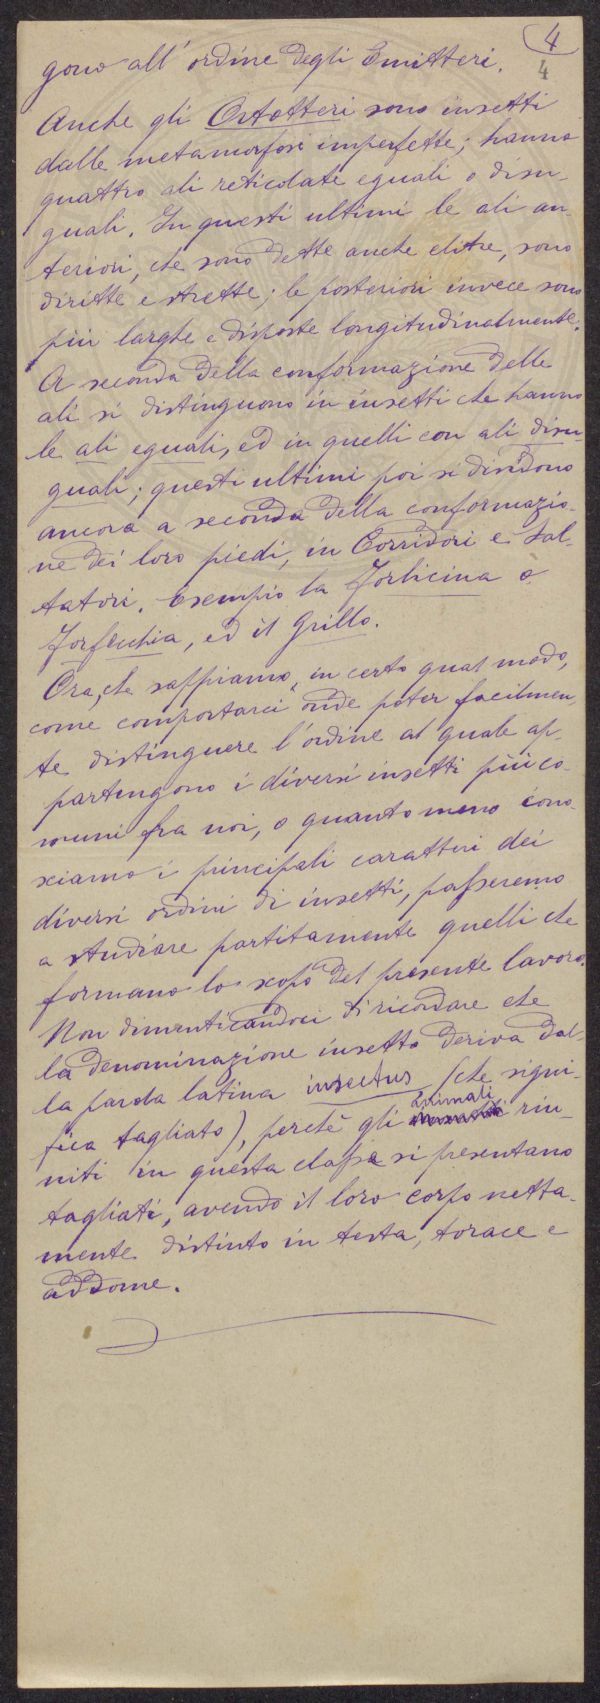 4
4
gono all' ordine degli Emitteri.
Anche gli Ortotteri sono insetti
dalle metamorfosi imperfette; hanno
quattro ali reticolate eguali o disu-
guali. In questi ultimi le ali an-
teriori, che sono dette anche elitre, sono
diritte e strette; le posteriori invece sono
più larghe e disposte longitudinalmente.
A seconda della conformazione delle
ali si distinguono in insetti che hanno
le ali eguali, ed in quelli con ali disu-
guali; questi ultimi poi si dividono
ancora a seconda della conformazio-
ne dei loro piedi, in Corridori e Sal-
tatori. esempio la Forbicina o
Forfecchia, ed il Grillo.
Ora, che sappiamo, in certo qual modo,
come comportarci onde poter facilmen-
te distinguere l'ordine al quale ap-
partengono i diversi insetti più co-
muni fra noi, o quanto meno cono-
sciamo i principali caratteri dei
diversi ordini di insetti, passeremo
a studiare partitamente quelli che
formano lo scopo del presente lavoro.
Non dimenticandoci di ricordare che
la denominazione insetto deriva dal-
la parola latina insectus (che signi-
fica tagliato), perchè gli animali riu-
niti in questa classe si presentano
tagliati, avendo il loro corpo netta-
mente distinto in testa, torace e
addome.